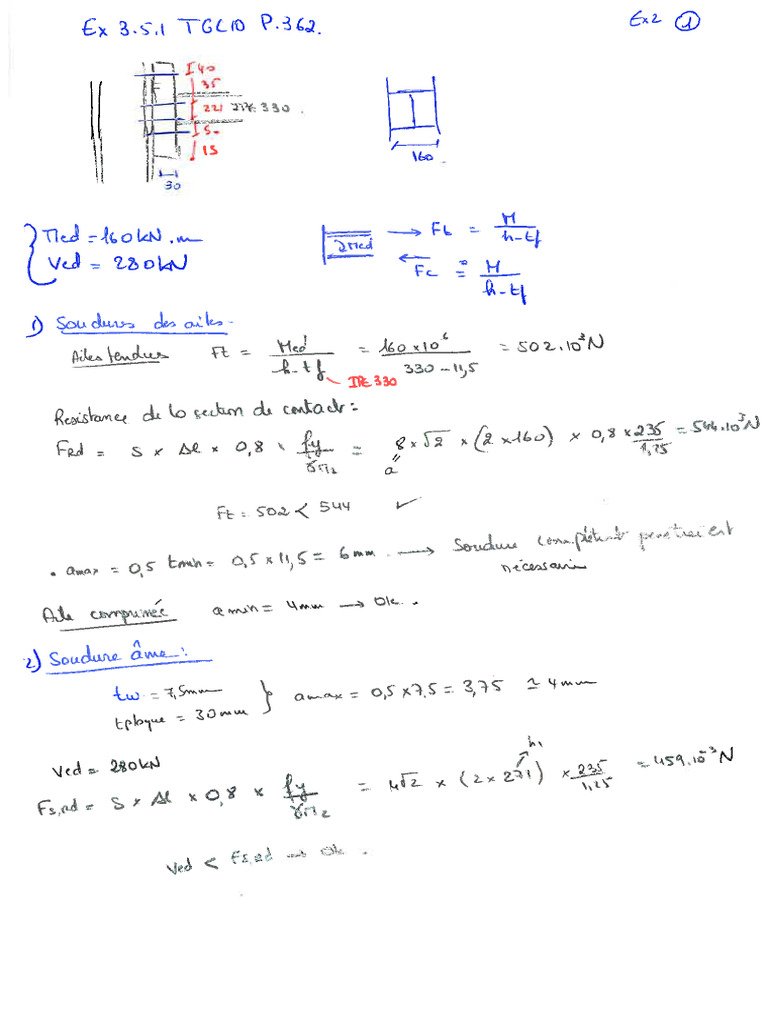 Ex 3.5.1 TGC10 P.362.
Ex2 ①
I 40
35
221 IPE 330.
50
15
30
160
Med = 160kN.m
Ved = 280kN
Med → Ft = M / h-tf
← Fc = M / h-tf
1) Soudures des ailes.
Ailes tendues Ft = Med / h-tf = 160×10⁶ / 330-11,5 = 502.10³N
→ IPE 330
Resistance de la section de contact :
FRd = S × Δl × 0,8 × fy / γM2 = 8×√2 × (2×160) × 0,8 × 235 / 1,25 = 544.10³N
a
Ft = 502 < 544 ✓
• amax = 0,5 tmin = 0,5×11,5 = 6mm. → Soudure complètement
nécessaire
Aile comprimée amin = 4mm → Ok.
2) Soudure âme :
tw = 7,5mm
tplaque = 30mm } amax = 0,5×7,5 = 3,75 ≃ 4mm
Ved = 280kN
h1
Fs,Rd = S × Δl × 0,8 × fy / γM2 = 4√2 × (2×271) × 235 / 1,25 = 459.10⁻³N
Ved < Fs,Rd → Ok.